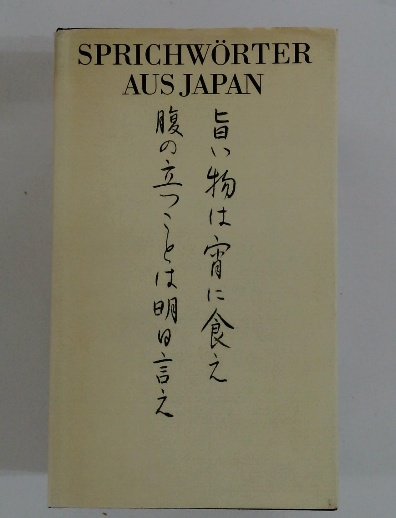 SPRICHWÖRTER
AUS JAPAN
旨い物は宵に食え
腹の立つことは明日言え